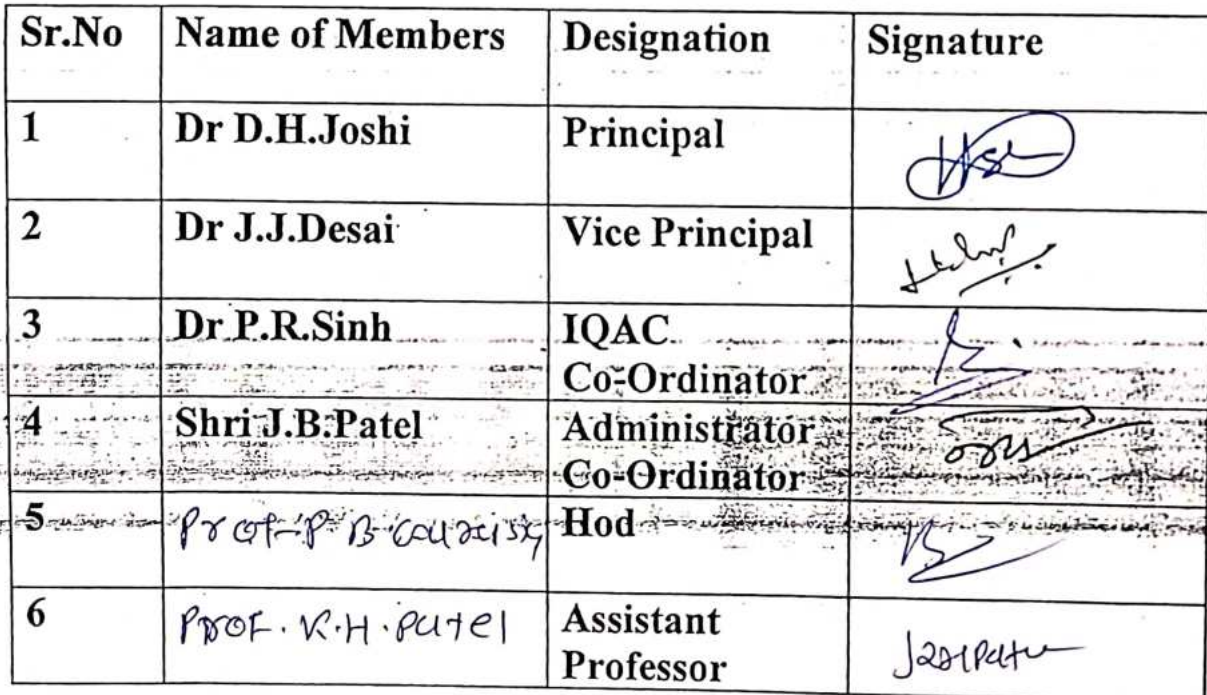 Sr.No Name of Members Designation Signature
1 Dr D.H.Joshi Principal
2 Dr J.J.Desai Vice Principal
3 Dr P.R.Sinh IQAC
Co-Ordinator
4 Shri J.B.Patel Administrator
Co-Ordinator
5 Prof. P. B. Hod
6 Prof. K.H. Patel Assistant
Professor